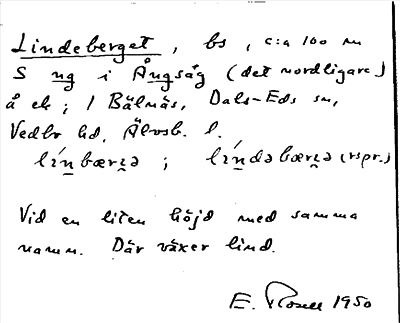 Lindeberget, bs, c:a 100 m
S ng i Ängsåg (det nordligare)
å ek; 1 Bälnäs, Dals-Eds sn,
Vedbo hd, Älvsb. l.
lín̲bærɪ̲ə; líndəbærɪ̲ə (rspr.)
Vid en liten höjd med samma
namn. Där växer lind.
E. Rosell 1950